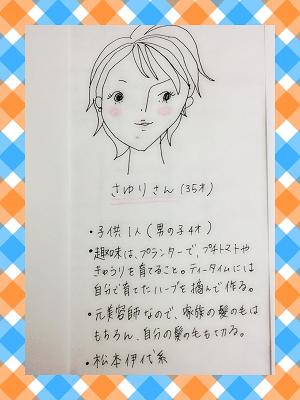 さゆりさん(35才)
・子供1人(男の子4才)
・趣味は、プランターで、プチトマトや
きゅうりを育てること。ティータイムには
自分で育てたハーブを摘んで作る。
・元美容師なので、家族の髪の毛は
もちろん、自分の髪の毛も切る。
・松本伊代系